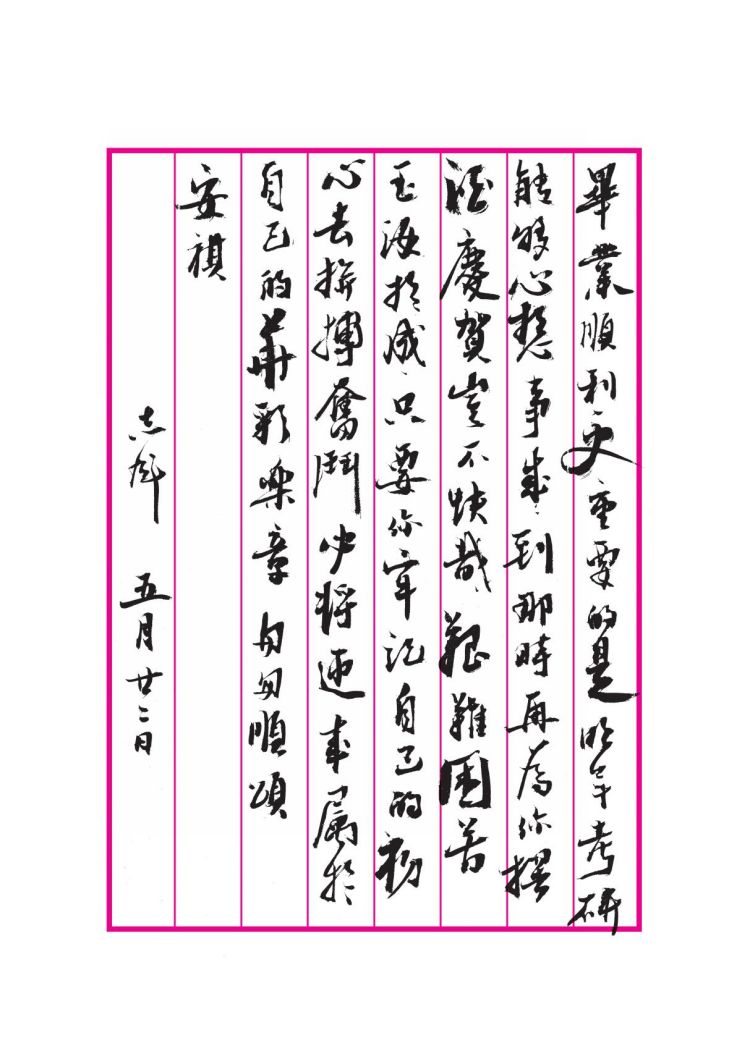 畢業順利更重要的是明年考研
能够心想事成到那時再為你擺
酒慶賀豈不快哉艱難困苦
玉汝於成只要你牢記自己的初
心去拚搏奮鬥必將迎來屬於
自己的華彩樂章匆匆順頌
安祺
志 五月廿二日